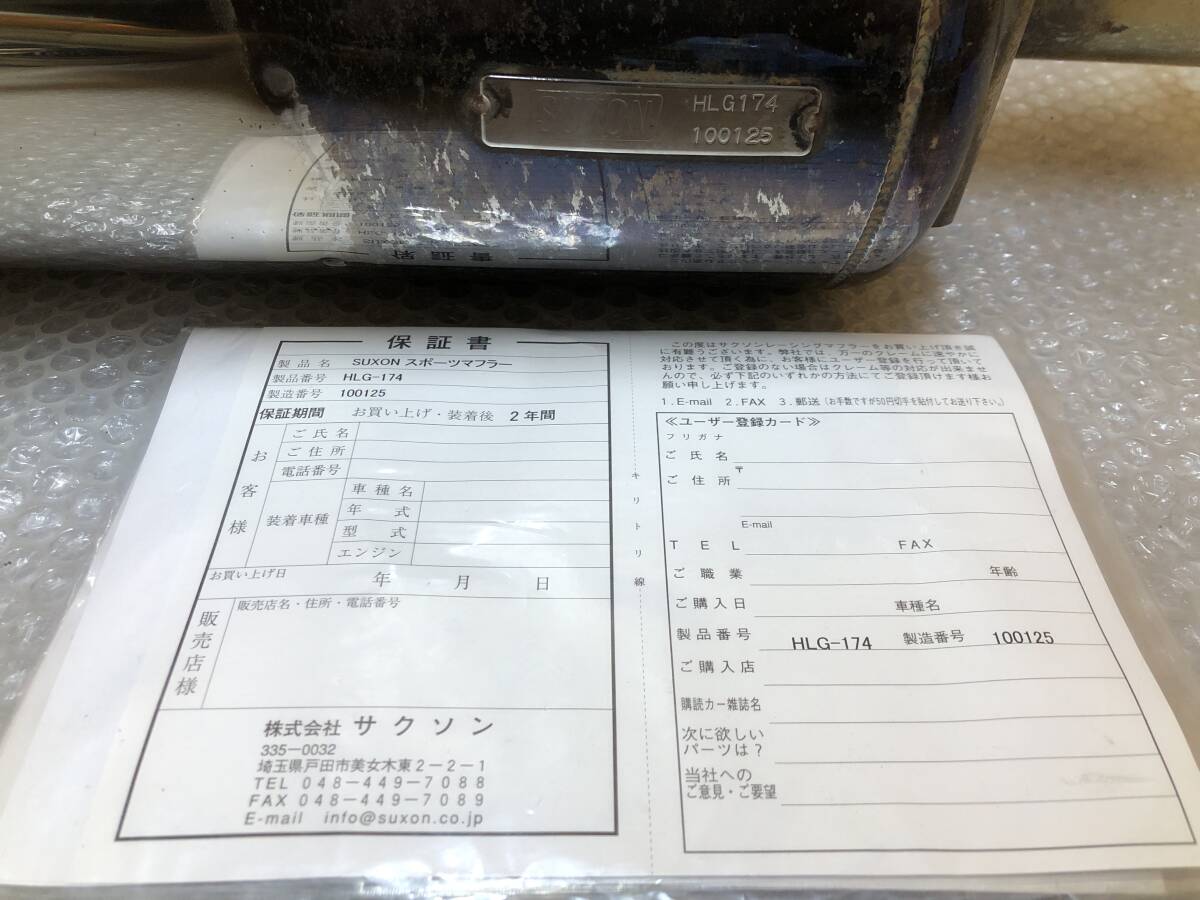 SUXON
HLG174
100125
保証書
製品名 SUXON スポーツマフラー
製品番号 HLG-174
製造番号 100125
保証期間 お買い上げ・装着後 2年間
お客様
ご氏名
ご住所
電話番号
装着車種
車種名
年式
型式
エンジン
お買い上げ日 年 月 日
販売店様
販売店名・住所・電話番号
株式会社 サクソン
335-0032
埼玉県戸田市美女木東2-2-1
TEL 048-449-7088
FAX 048-449-7089
E-mail info@suxon.co.jp
キリトリ線
この度はサクソンレーシングマフラーをお買い上げ頂き誠
に有難うございます。弊社では、万一のクレームに速やかに
対応させて頂く為に、お客様にユーザー登録を行って頂いて
おります。ご登録のない場合はクレーム等の対応が出来ませ
んので、必ず下記のいずれかの方法にてご登録頂けます様お
願い申し上げます。
1.E-mail 2.FAX 3.郵送（お手数ですが50円切手を貼付してお送り下さい。）
≪ユーザー登録カード≫
フリガナ
ご氏名
ご住所 〒
E-mail
TEL FAX
ご職業 年齢
ご購入日 車種名
製品番号 HLG-174 製造番号 100125
ご購入店
購読カー雑誌名
次に欲しい
パーツは？
当社への
ご意見・ご要望